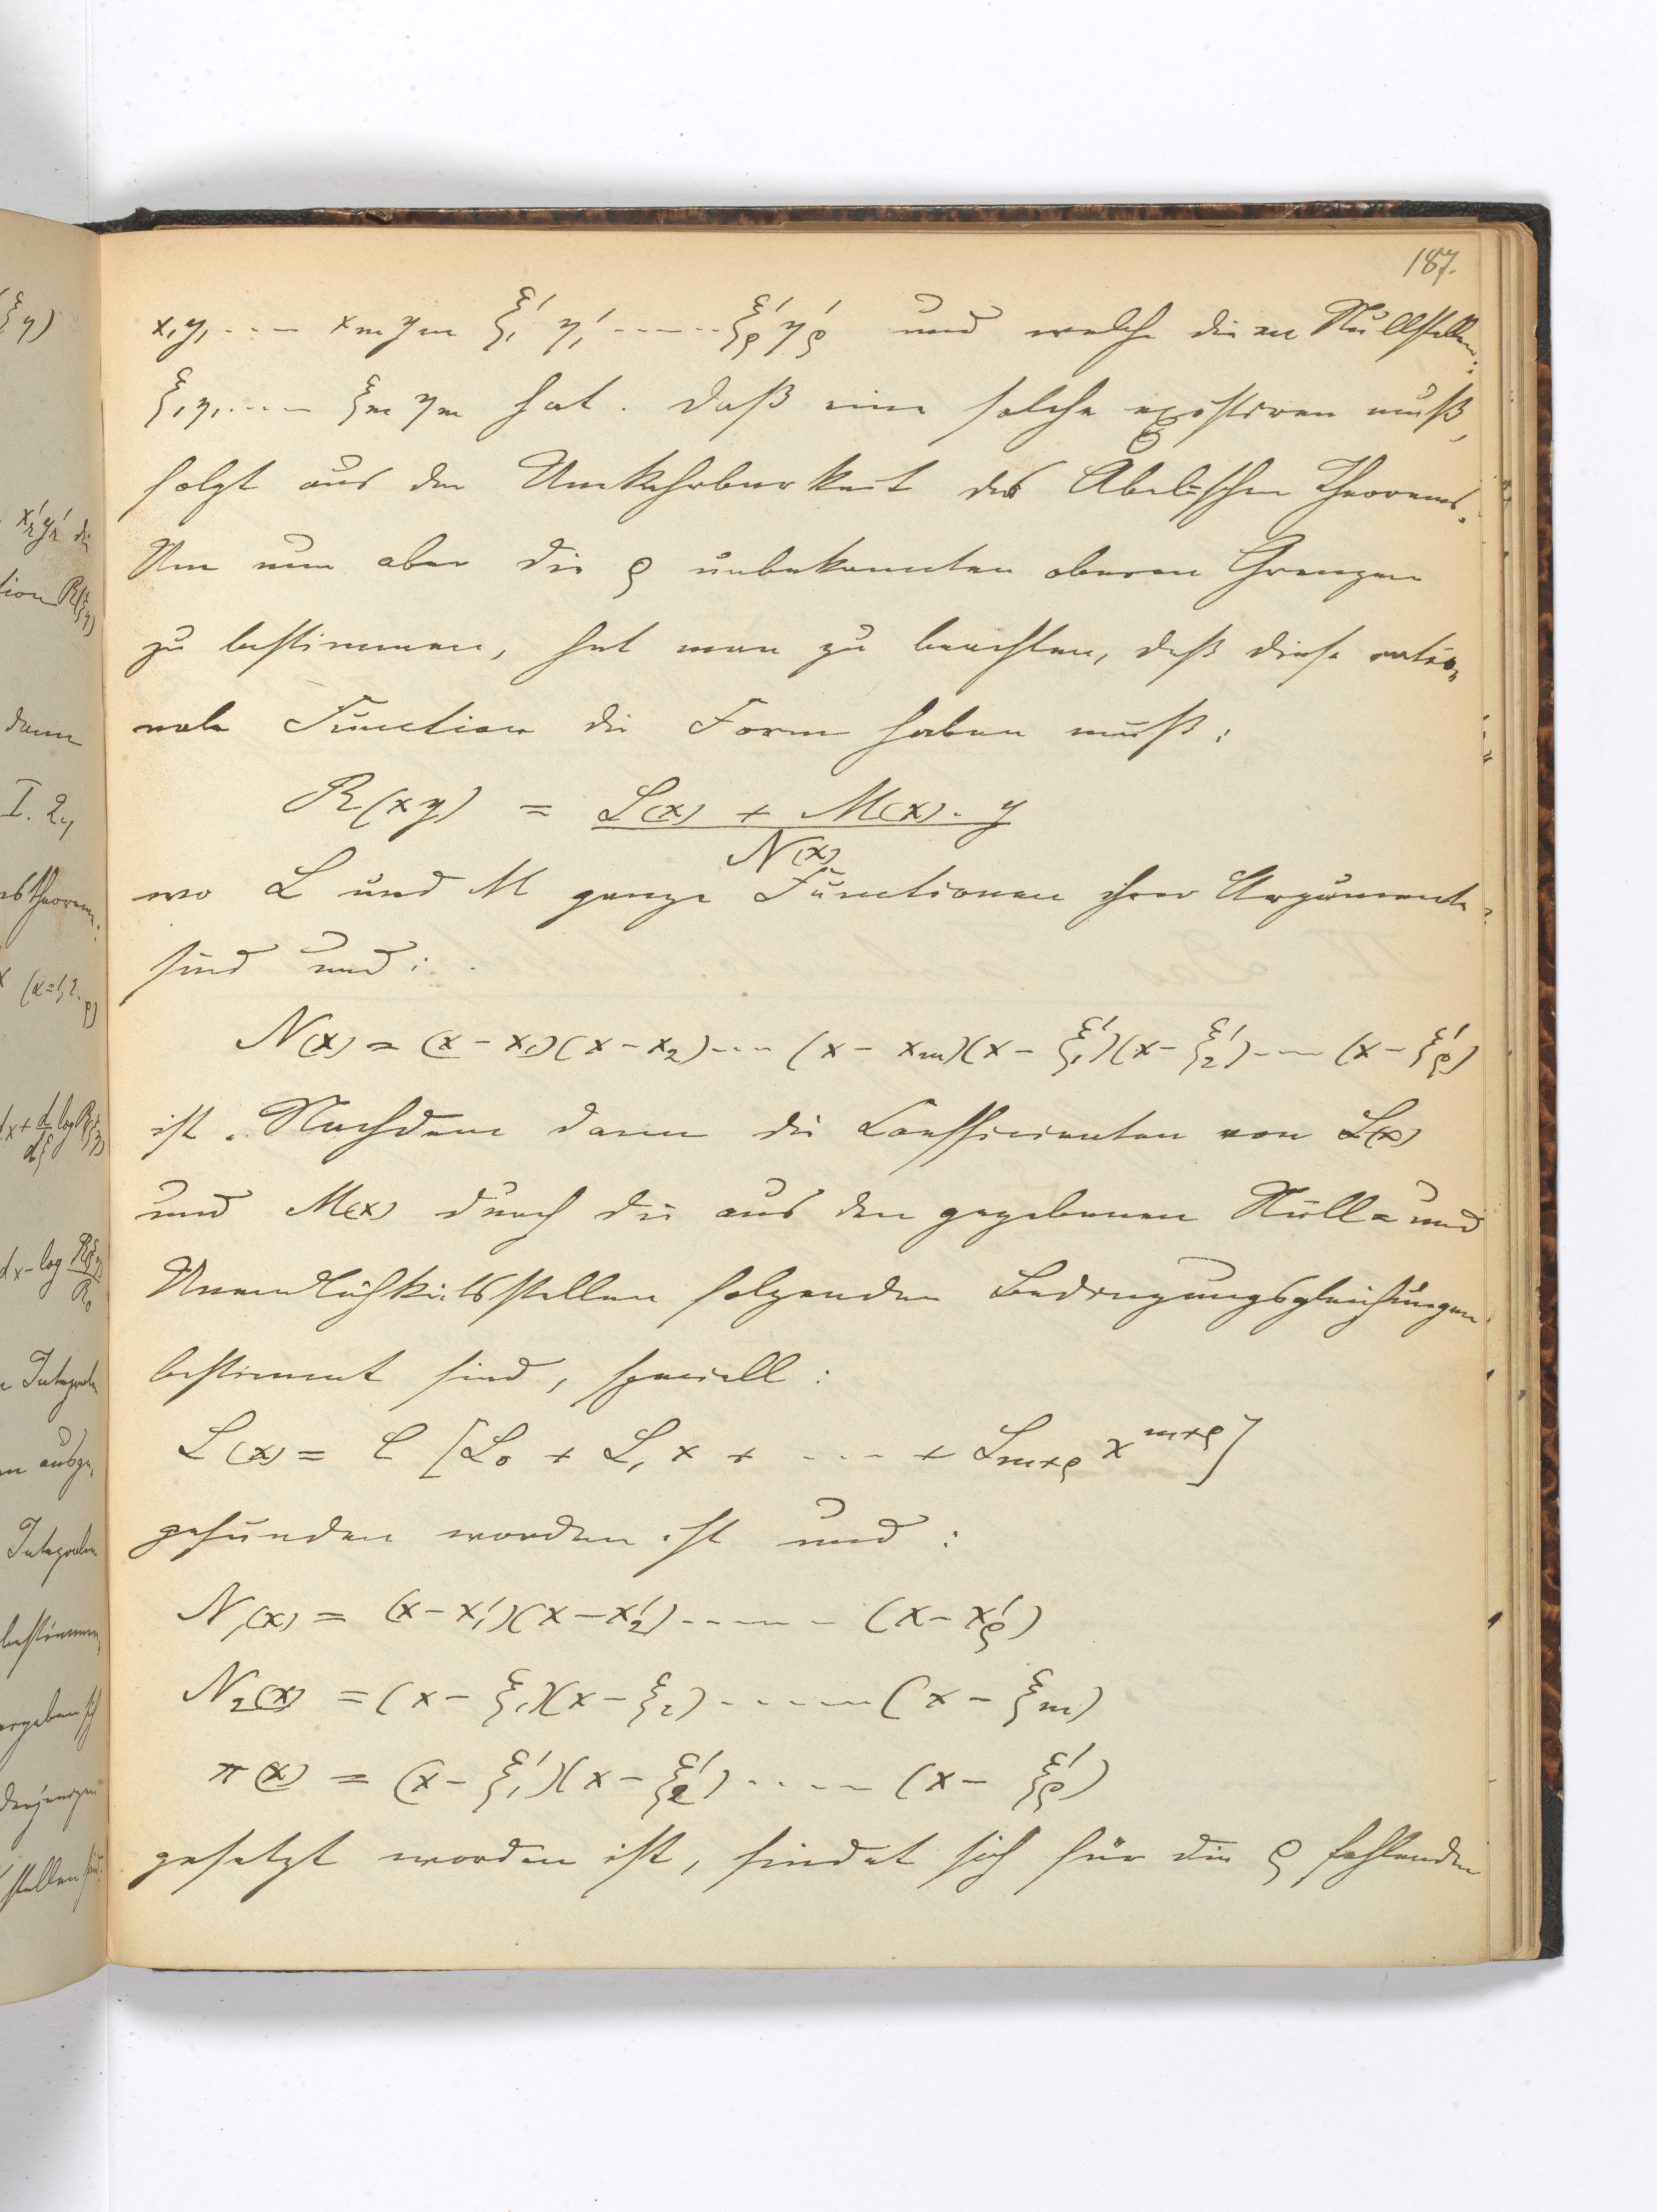 187.
x₁y₁ .... xₘyₘ ξ₁' η₁' ...... ξ'ρ η'ρ und welche die m Nullstellen:
ξ₁η₁ .... ξₘ ηₘ hat. Daß eine solche existiren muß,
folgt aus der Umkehrbarkeit des Abelschen Theorems.
Um nun aber die ρ unbekannten oberen Grenzen
zu bestimmen, hat man zu beachten, daß diese ratio-
nale Function die Form haben muß:
R(xy) = L(x) + M(x). y
N(x)
wo L und M ganze Functionen ihrer Argumente
sind und:
N(x) = (x-x₁)(x-x₂)....(x-xₘ)(x-ξ₁')(x-ξ₂')....(x-ξ'ρ)
ist. Nachdem dann die Coefficienten von L(x)
und M(x) durch die aus den gegebenen Null= und
Unendlichkeitsstellen folgenden Bedingungsgleichungen
bestimmt sind, speciell:
L(x) = C [L₀ + L₁x + .... + Lₘ₊ρ x^{m+ρ}]
gefunden worden ist und:
N₁(x) = (x-x₁')(x-x₂')...... (x-x'ρ)
N₂(x) = (x-ξ₁)(x-ξ₂)......(x-ξₘ)
π(x) = (x-ξ₁')(x-ξ₂')..... (x-ξ'ρ)
gesetzt worden ist, findet sich für die ρ fehlenden